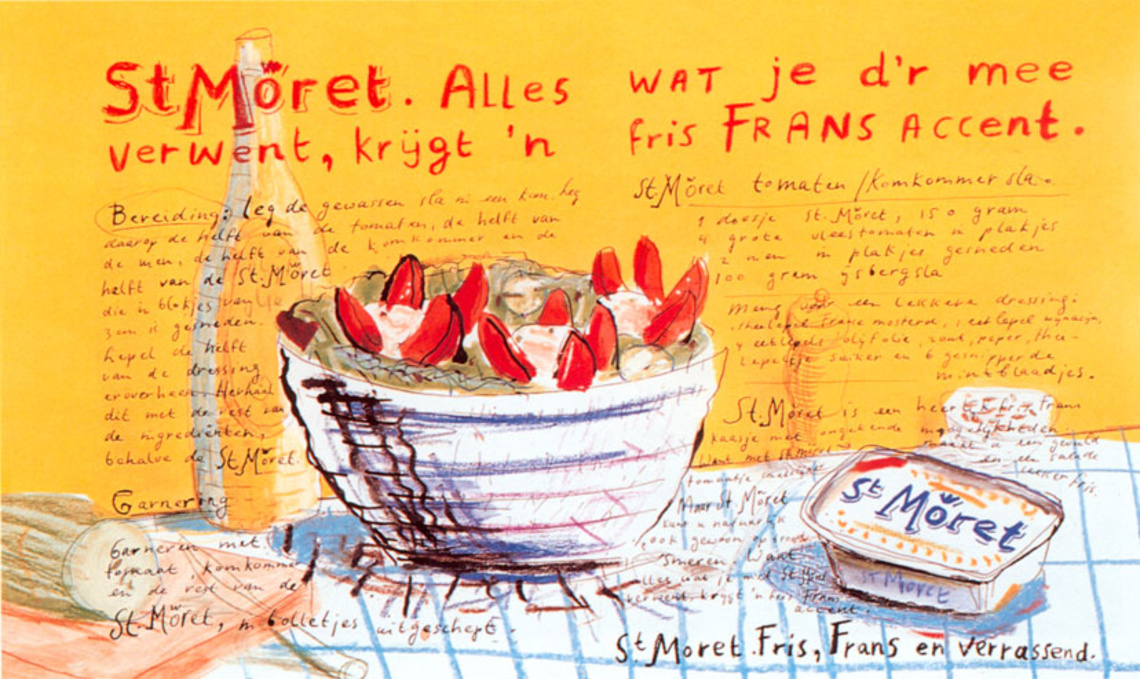 St Mŏret. Alles wat je d'r mee
verwent, krijgt 'n fris FRANS accent.
Bereiding: leg de gewassen sla in een kom. leg
daarop de helft van de tomaten, de helft van
de uien, de helft van de komkommer en de
helft van de St. Mŏret
die in blokjes van
3 cm is gesneden.
Schepel de helft
van de dressing
erover heen. Herhaal
dit met de rest van
de ingrediënten,
behalve de St Mŏret.
Garnering
Garneren met
tomaat komkommer
en de rest van de
St. Mŏret, in bolletjes uitgeschept.
St Mŏret tomaten / komkommer sla.
1 doosje St. Mŏret, 150 gram
4 grote vleestomaten in plakjes
2 uien in plakjes gesneden
100 gram ijsbergsla
Meng voor een lekkere dressing:
1 theelepel Franse mosterd, 1 eetlepel wijnazijn,
4 eetlepels olijfolie, zout, peper, thee-
lepeltje suiker en 6 gesnipperde
muntblaadjes.
St. Mŏret is een heerlijk fris Frans
kaasje met ongekende mogelijkheden.
Want met St Mŏret
tomaatje
Maar St. Mŏret
kunt u natuurlijk
ook gewoon op brood
smeren. Want
alles wat je met St Mŏret
verwent, krijgt 'n fris Frans
accent.
St Mŏret
St Mŏret
St Moret. Fris, Frans en verrassend.